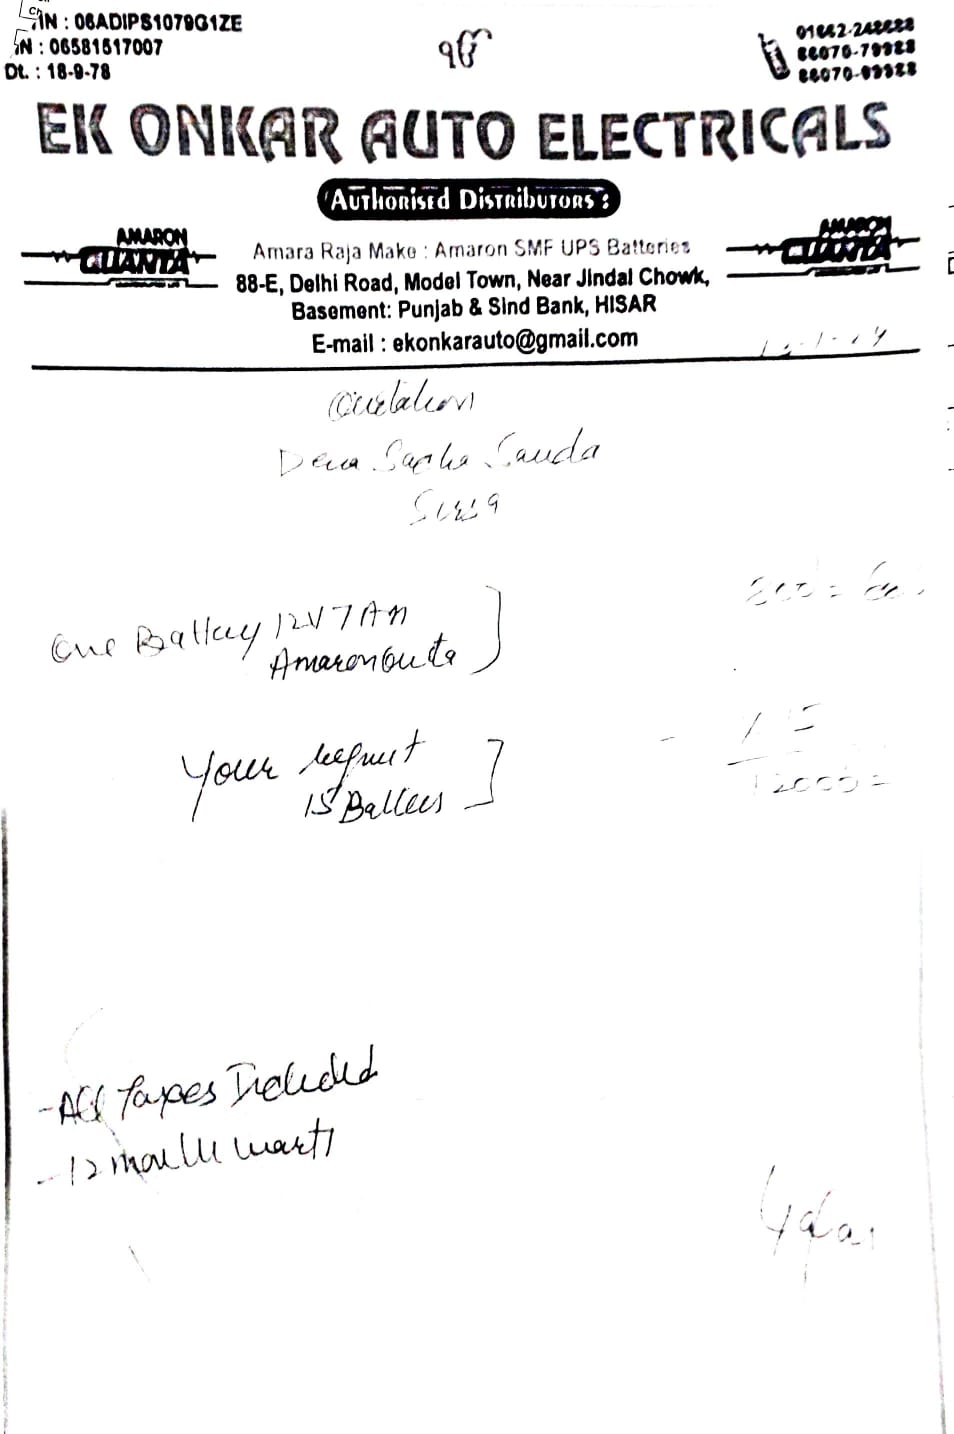 IN : 06ADIPS1079G1ZE
IN : 06581517007
Dt. : 18-9-78
ੴ
01662-248688
86070-79988
86070-99988
EK ONKAR AUTO ELECTRICALS
Authorised Distributors :
AMARON QUANTA
Amara Raja Make : Amaron SMF UPS Batteries
AMARON QUANTA
88-E, Delhi Road, Model Town, Near Jindal Chowk,
Basement: Punjab & Sind Bank, HISAR
E-mail : ekonkarauto@gmail.com
Quotation
Dera Sacha Sauda
Sirsa
One Battery 12V 7AH
Amaron
800=
Your
15 Batteries
15
12000=
- All Taxes Included
- 12 month